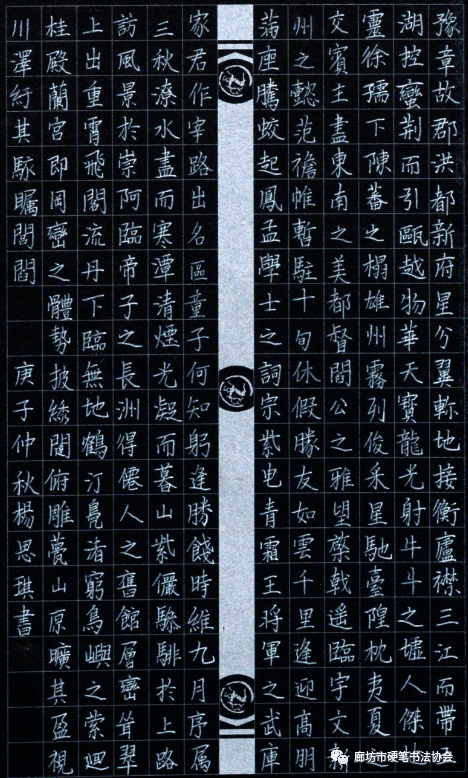 豫章故郡洪都新府星分翼軫地接衡廬襟三江而帶
湖控蠻荊而引甌越物華天寶龍光射牛斗之墟人傑
靈徐孺下陳蕃之榻雄州霧列俊采星馳臺隍枕夷夏
交賓主盡東南之美都督閻公之雅望棨戟遙臨宇文
州之懿范襜帷暫駐十旬休假勝友如雲千里逢迎高朋
滿座騰蛟起鳳孟學士之詞宗紫电青霜王將軍之武庫
家君作宰路出名區童子何知躬逢勝餞時維九月序属
三秋潦水盡而寒潭清煙光凝而暮山紫儼驂騑於上路
訪風景於崇阿臨帝子之長洲得僊人之舊館層巒聳翠
上出重霄飛閣流丹下臨無地鶴汀鳧渚窮島嶼之縈迴
桂殿蘭宮即岡巒之體勢披綉闥俯雕甍山原曠其盈視
川澤紆其駭矚閭閻 庚子仲秋楊思琪書
廊坊市硬笔书法协会